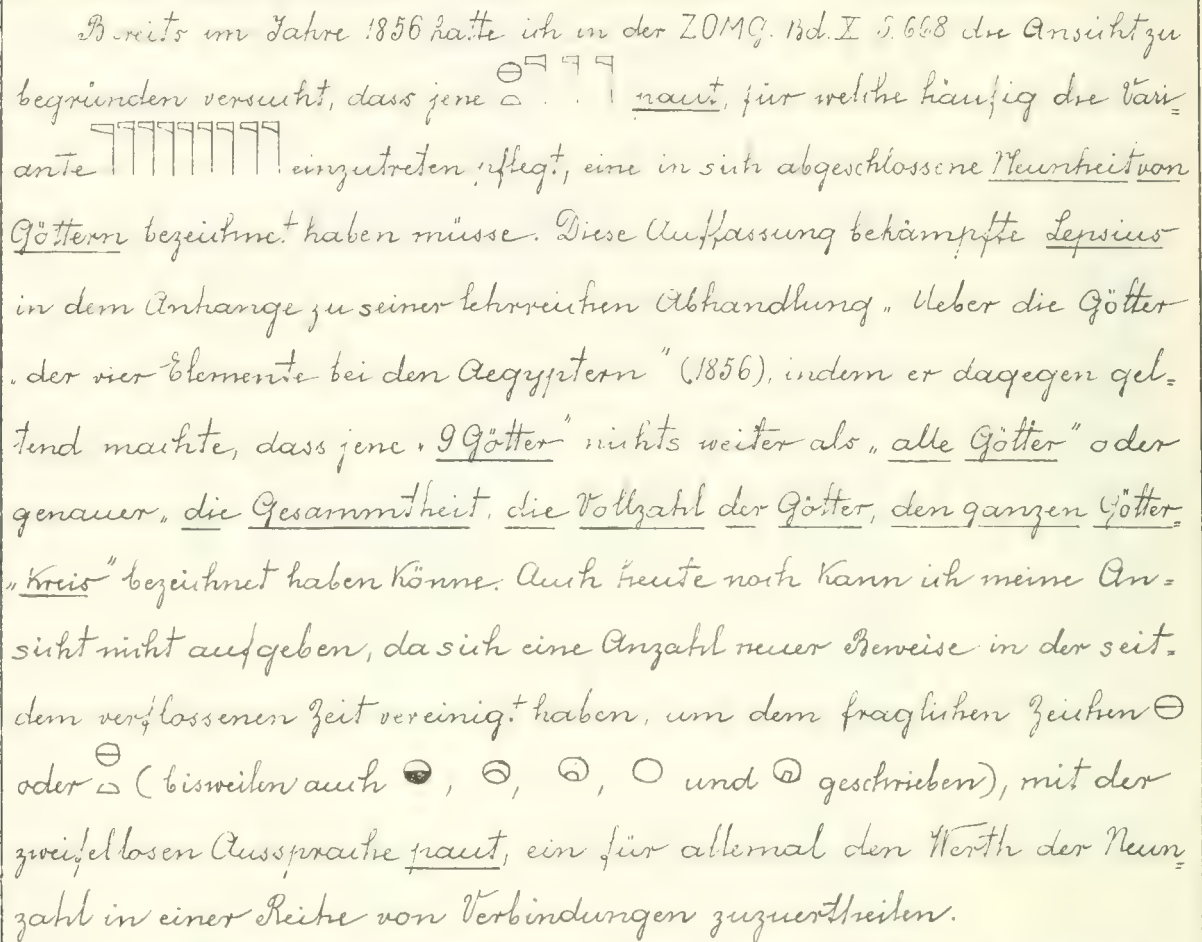 Bereits im Jahre 1856 hatte ich in der ZDMG. Bd. X S. 668 die Ansicht zu
begründen versucht, dass jene 𓏒𓏏𓊹𓊹𓊹 paut, für welche häufig die Vari=
ante 𓊹𓊹𓊹𓊹𓊹𓊹𓊹𓊹𓊹 einzutreten pflegt, eine in sich abgeschlossene Neunheit von
Göttern bezeichnet haben müsse. Diese Auffassung bekämpfte Lepsius
in dem Anhange zu seiner lehrreichen Abhandlung „Ueber die Götter
„der vier Elemente bei den Aegyptern" (1856), indem er dagegen gel=
tend machte, dass jene „9 Götter" nichts weiter als „alle Götter" oder
genauer „die Gesammtheit, die Vollzahl der Götter, den ganzen Götter=
„kreis" bezeichnet haben könne. Auch heute noch kann ich meine An=
sicht nicht aufgeben, da sich eine Anzahl neuer Beweise in der seit=
dem verflossenen Zeit vereinigt haben, um dem fraglichen Zeichen ⊖
oder ⊖𓏏 (bisweilen auch , , , ○ und geschrieben), mit der
zweifellosen Aussprache paut, ein für allemal den Werth der Neun=
zahl in einer Reihe von Verbindungen zuzuertheilen.